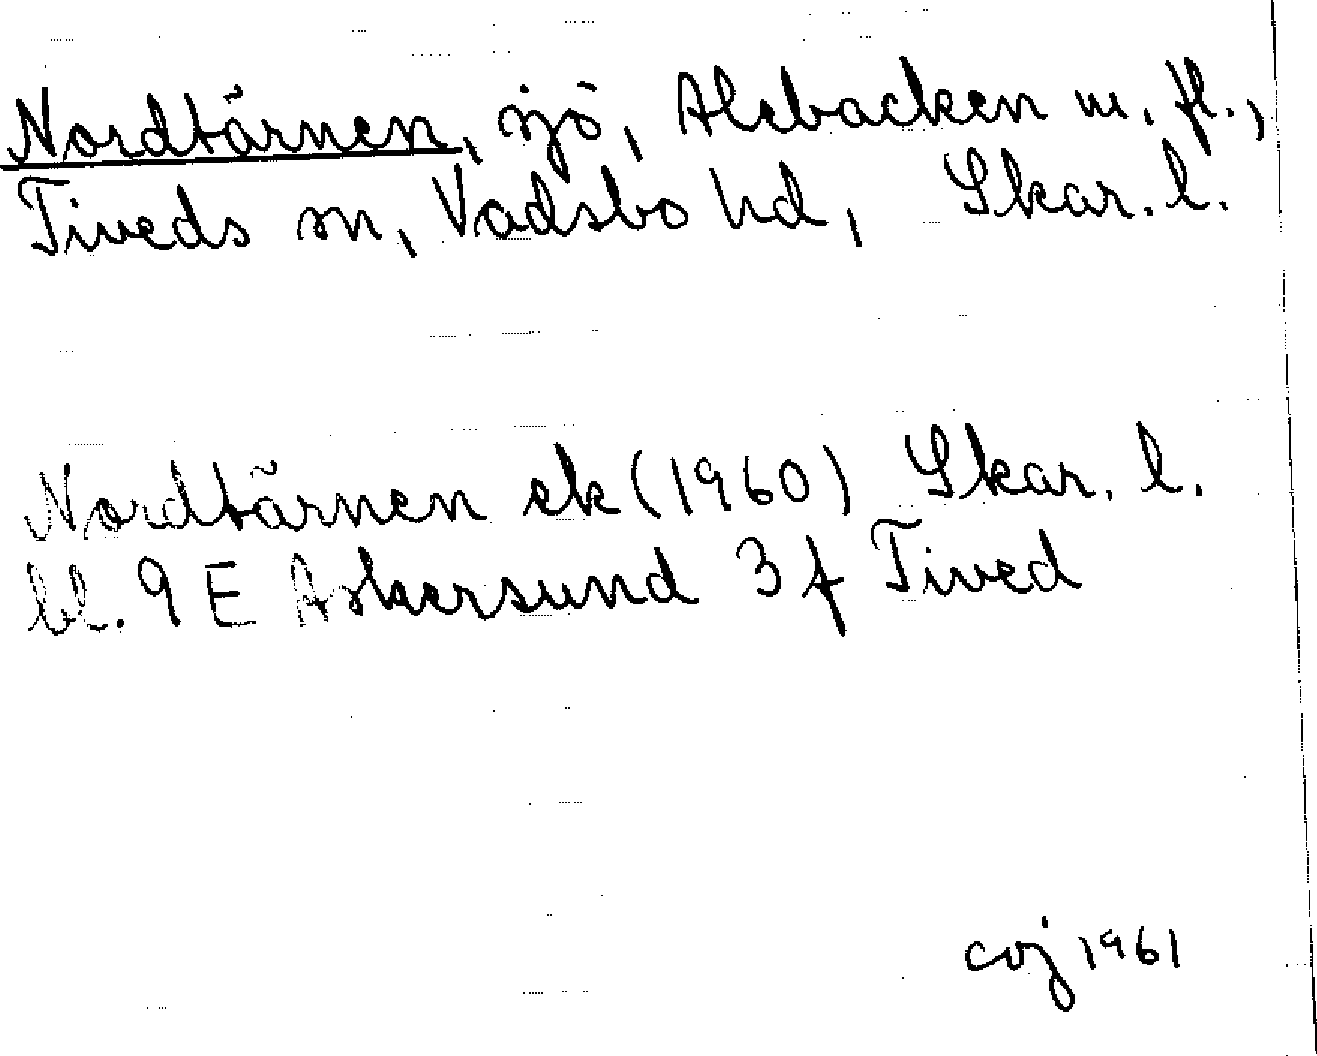 Nordtärnen, sjö, Alsbacken m. fl.,
Tiveds sn, Vadsbo hd, Skar. l.
Nordtärnen ek (1960) Skar. l.
bl. 9 E Askersund 3 f Tived
coj 1961